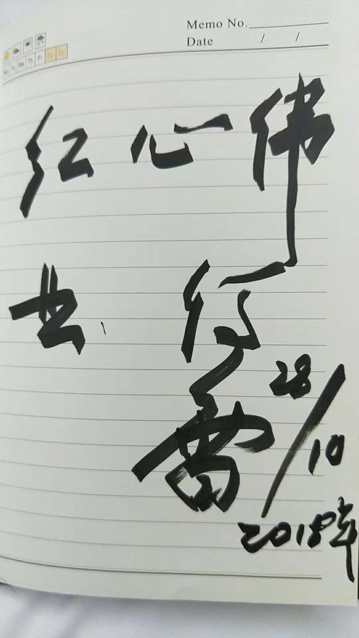 Memo No.
Date / /
红心伟
业
雷
28/10
2018年